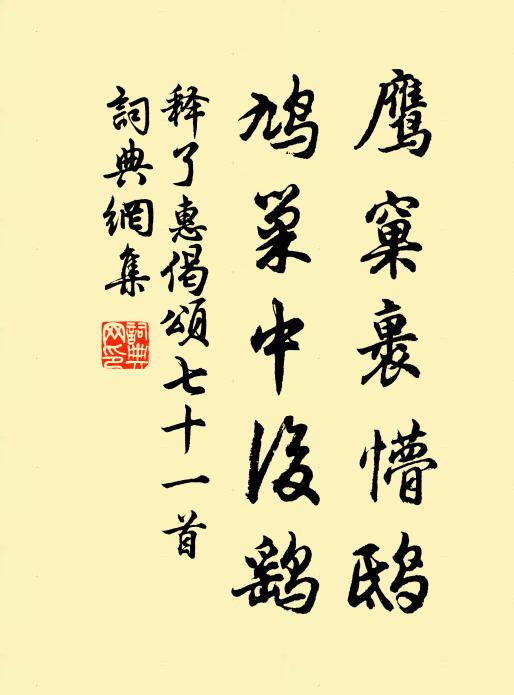 鹰窠裹懵鸱
鸠巢中後鹞
释了惠偈颂七十一首
詞典網集
詞典网印